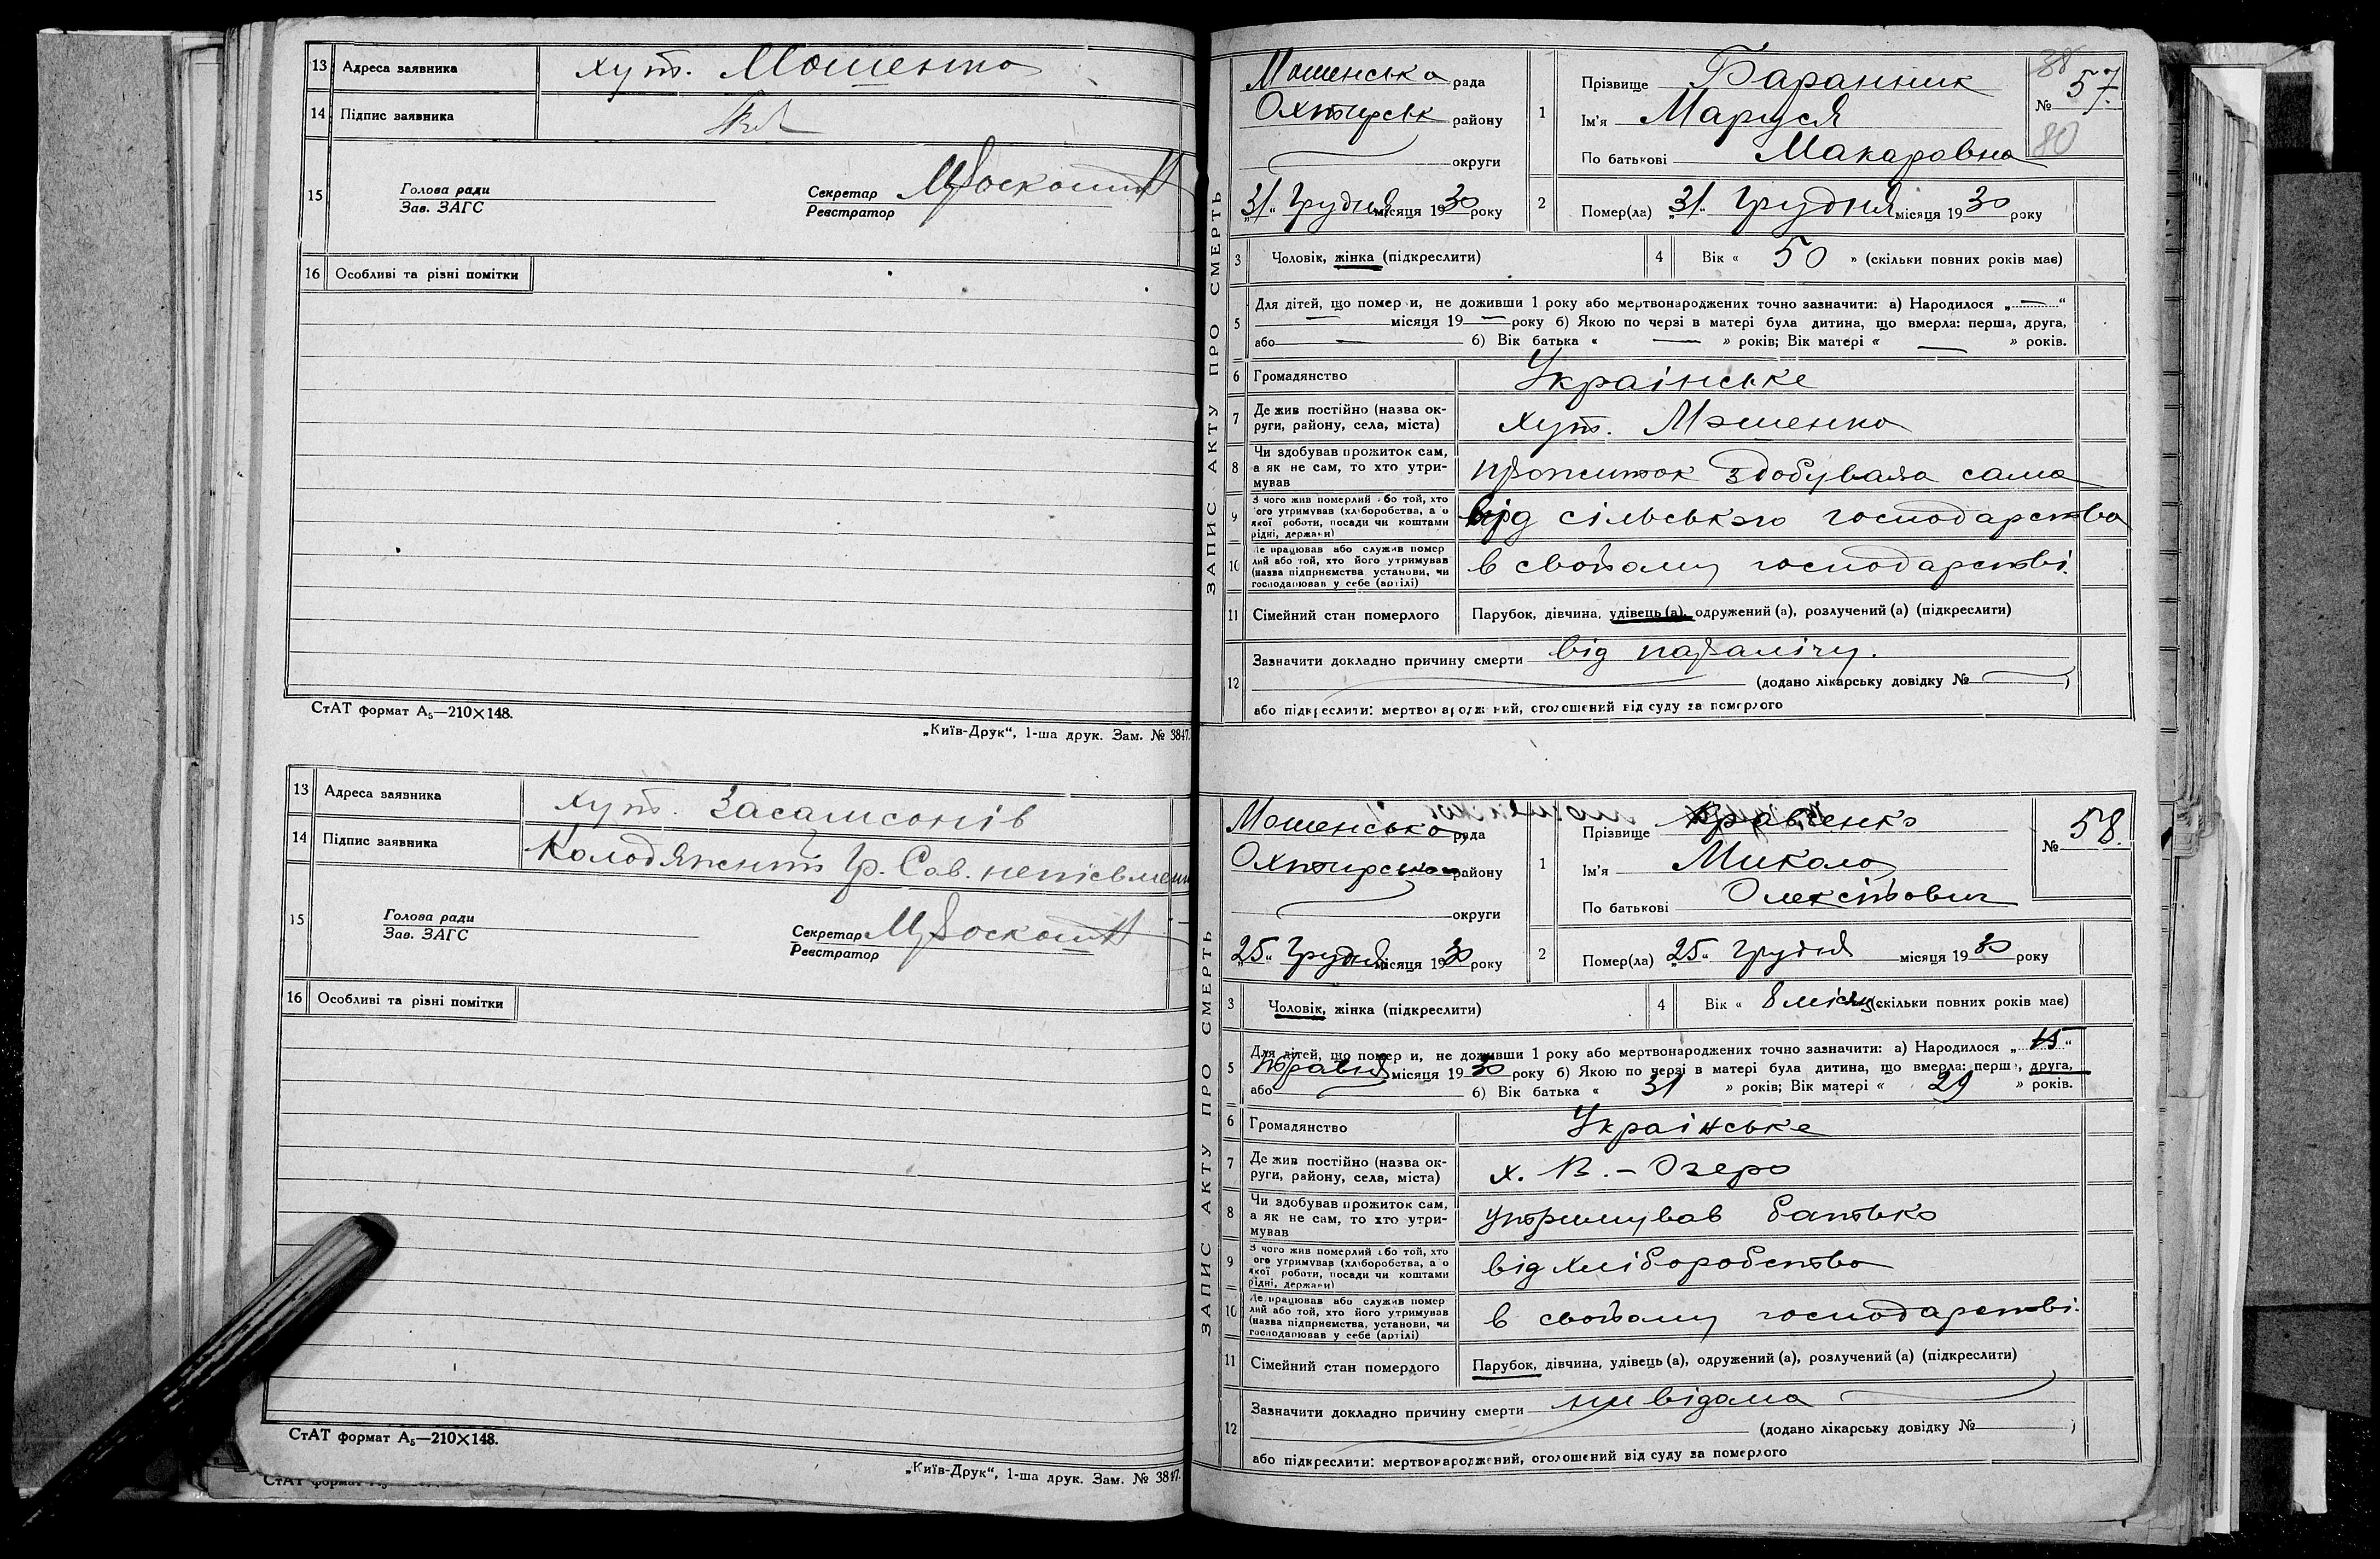 13 Адреса заявника хут. Мошенка
14 Підпис заявника
15 Голова ради Секретар
Зав. ЗАГС Реєстратор
16 Особливі та різні помітки
СтАТ формат А5—210×148.
„Київ-Друк“, 1-ша друк. Зам. № 3847.
13 Адреса заявника хут. Засамсонів
14 Підпис заявника Колодяжний Гр. Сав.
15 Голова ради Секретар
Зав. ЗАГС Реєстратор
16 Особливі та різні помітки
СтАТ формат А5—210×148.
„Київ-Друк“, 1-ша друк. Зам. № 3847.
СтАТ формат
ЗАПИС АКТУ ПРО СМЕРТЬ
Мошенська рада
Охтирськ району
округи
„31“ Грудня місяця 1930 року
1 Прізвище Баранник
Ім'я Маруся
По батькові Макаровна
88
№ 57.
80
2 Помер(ла) „31“ Грудня місяця 1930 року
3 Чоловік, жінка (підкреслити)
4 Вік « 50 » (скільки повних років має)
5 Для дітей, що помер и, не доживши 1 року або мертвонароджених точно зазначити: а) Народилося „—“
— місяця 19— року б) Якою по черзі в матері була дитина, що вмерла: перша, друга,
або — б) Вік батька « — » років; Вік матері « — » років.
6 Громадянство Украінське
7 Де жив постійно (назва ок-
руги, району, села, міста) хут. Мошенка
8 Чи здобував прожиток сам,
а як не сам, то хто утри-
мував прожиток здобувала сама
9 З чого жив померлий або той, хто
ого утримував (хліборобства, а о
якої роботи, посади чи коштами
рідні, держави) від сільського господарства
10 Де працював або служив помер
лий або той, хто його утримував
(назва підприємства, установи, чи
господарював у себе (артілі) в своьому господарстві.
11 Сімейний стан померлого Парубок, дівчина, удівець (а), одружений (а), розлучений (а) (підкреслити)
12 Зазначити докладно причину смерти від паралічу.
(додано лікарську довідку № )
або підкреслити: мертвонароджений, оголошений від суду за померлого
ЗАПИС АКТУ ПРО СМЕРТЬ
Мошенська рада
Охтирська району
округи
„25“ Грудня місяця 1930 року
1 Прізвище Кравченко
Ім'я Микола
По батькові
№ 58.
2 Помер(ла) „25“ Грудня місяця 1930 року
3 Чоловік, жінка (підкреслити)
4 Вік « 8 місяц (скільки повних років має)
5 Для дітей, що помер и, не доживши 1 року або мертвонароджених точно зазначити: а) Народилося „15“
місяця 1930 року б) Якою по черзі в матері була дитина, що вмерла: перш , друга,
або б) Вік батька « 31 » років; Вік матері « 29 » років.
6 Громадянство Украінське
7 Де жив постійно (назва ок-
руги, району, села, міста) х. В.-Озеро
8 Чи здобував прожиток сам,
а як не сам, то хто утри-
мував утримував батько
9 З чого жив померлий або той, хто
ого утримував (хліборобства, а о
якої роботи, посади чи коштами
рідні, держави) від хліборобства
10 Де працював або служив помер
лий або той, хто його утримував
(назва підприємства, установи, чи
господарював у себе (артілі) в своьому господарстві.
11 Сімейний стан померлого Парубок, дівчина, удівець (а), одружений (а), розлучений (а) (підкреслити)
12 Зазначити докладно причину смерти ни відома
(додано лікарську довідку № )
або підкреслити: мертвонароджений, оголошений від суду за померлого